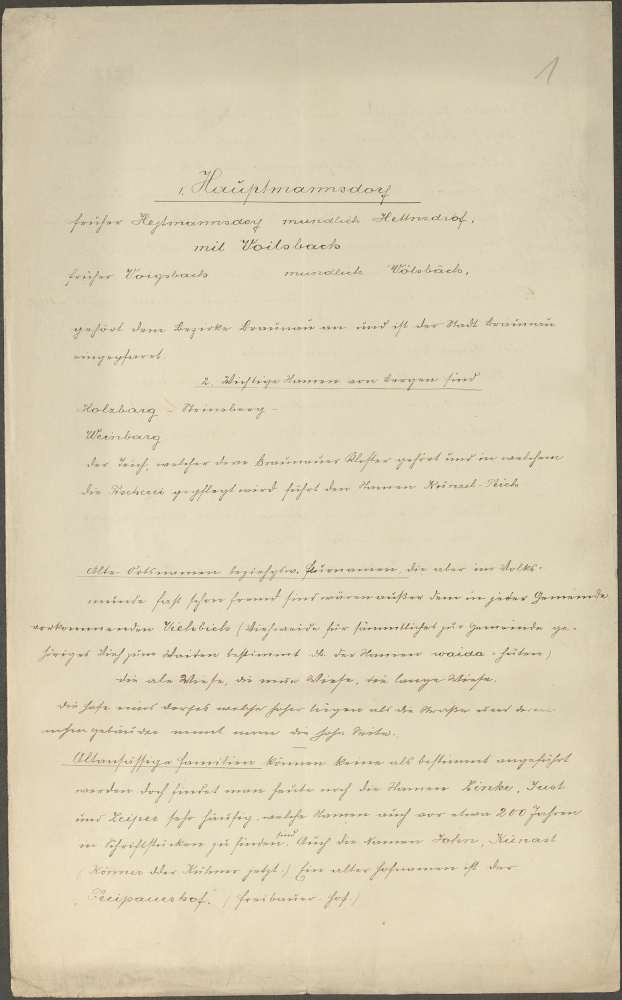 1
1. Hauptmannsdorf
früher Hejtmannsdorf mundlich Hettnsdrof,
mit Voilsbach
früher Voigsbach mundlich Völsbäch,
gehört dem Bezirke Braunau an und ist der Stadt Braunau
eingepfarrt.
2. Wichtige Namen von Bergen sind
Holzbarg - Steineberg -
Weinbarg
der Teich, welcher dem Braunauer Kloster gehört und in welchem
die Fischerei gepflegt wird führt den Namen Teich
Alte Ortsnamen beziehgsw. Flurnamen, die aber im Volks-
munde fast schon fremd sind wären außer dem in jeder Gemeinde
vorkommenden Viehbich (Viehweide für sämmtliches zur Gemeinde ge-
höriges Vieh zum Waiden bestimmt der Namen waida - hüten)
die ale Wiese, die neue Wiese, die lange Wiese.
die Höfe eines Dorfes welche höher liegen als die Straße und
gebäuden nennt man die hohe Seite.
Altansässige Familien können keine als bestimmt angeführt
werden doch findet man heute noch die Namen Zinke, Just
und sehr häufig, welche Namen auch vor etwa 200 Jahren
in Schriftstücken zu finden sind. Auch die Namen Kienast
( oder jetzt.) Ein alter Hofnamen ist der
"Freipauerhof." (Freibauer-hof.)